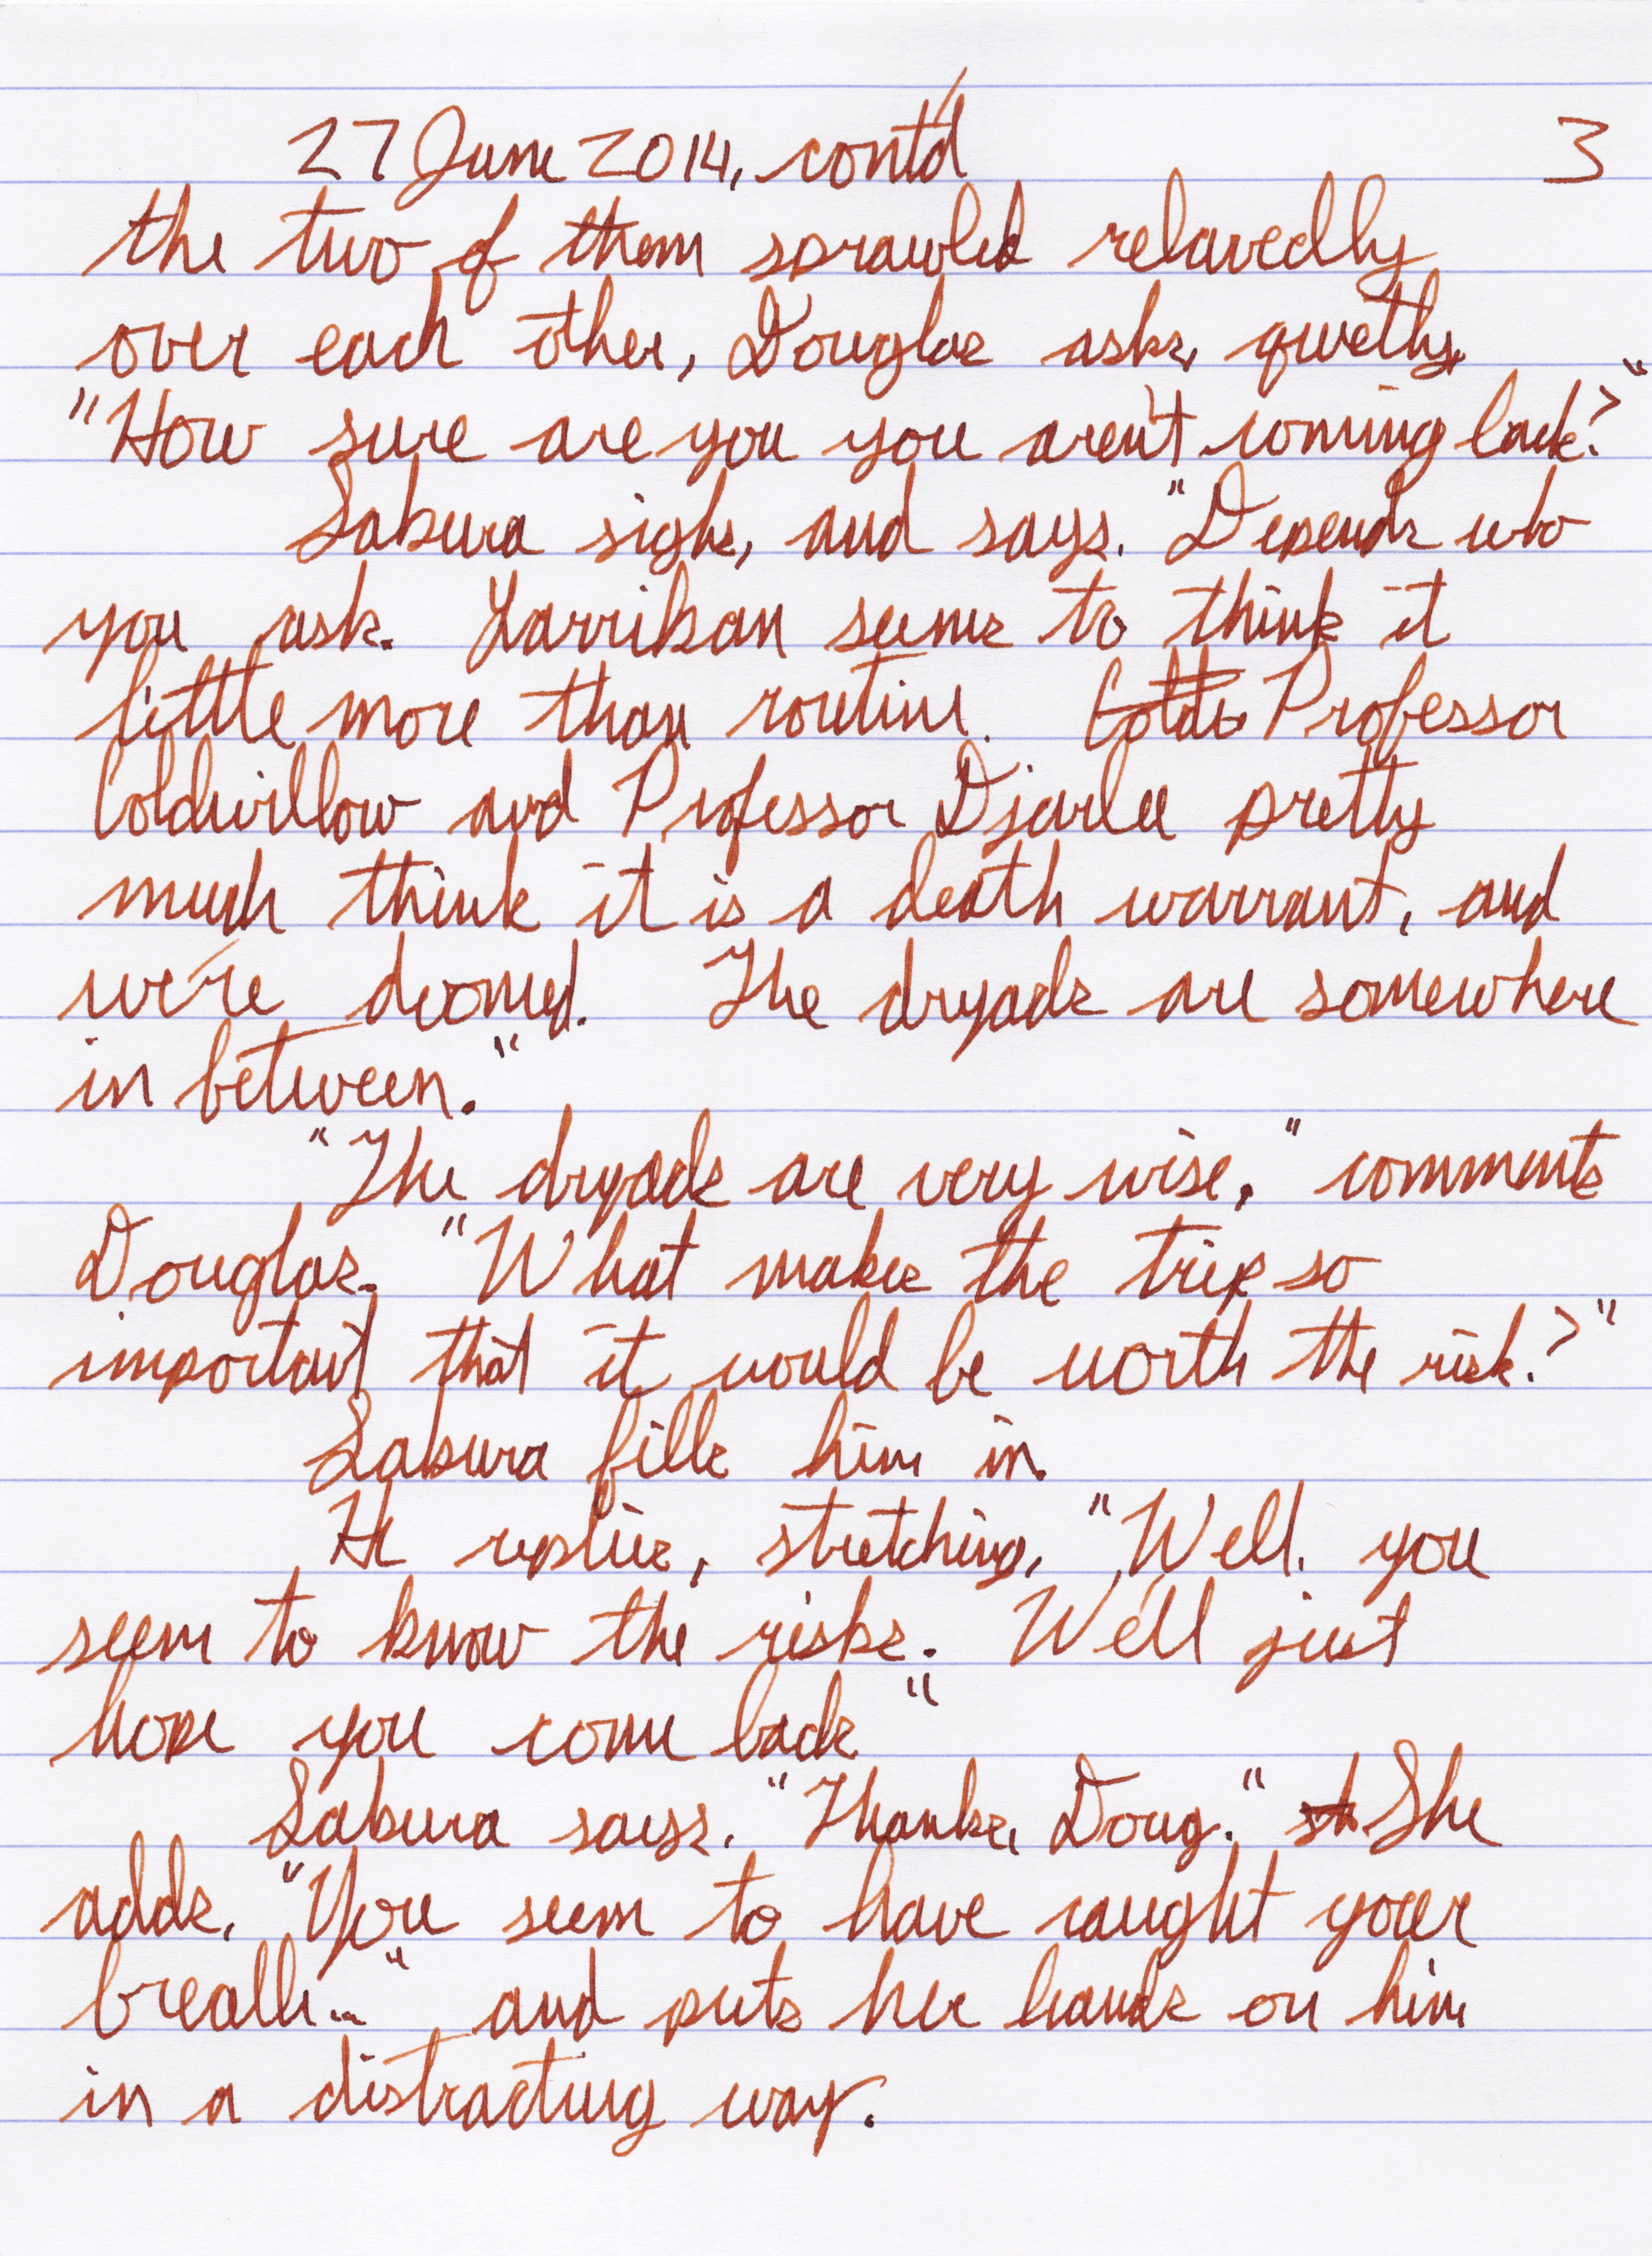 27 June 2014, cont'd 3
the two of them sprawled relaxedly
over each other, Douglas asks, quietly,
"How sure are you you aren't coming back?"
Sabura sighs, and says, "Depends who
you ask. Larrikan seems to think it
little more than routine. Coldw Professor
Coldwillow and Professor Djarlee pretty
much think it is a death warrant, and
we're doomed. The dryads are somewhere
in between."
"The dryads are very wise," comments
Douglas. "What makes the trip so
important that it would be worth the risk?"
Sabura fills him in.
He replies, stretching, "Well, you
seem to know the risks. We'll just
hope you come back."
Sabura says, "Thanks, Doug." sh She
adds, "You seem to have caught your
breath..." and puts her hands on him
in a distracting way.